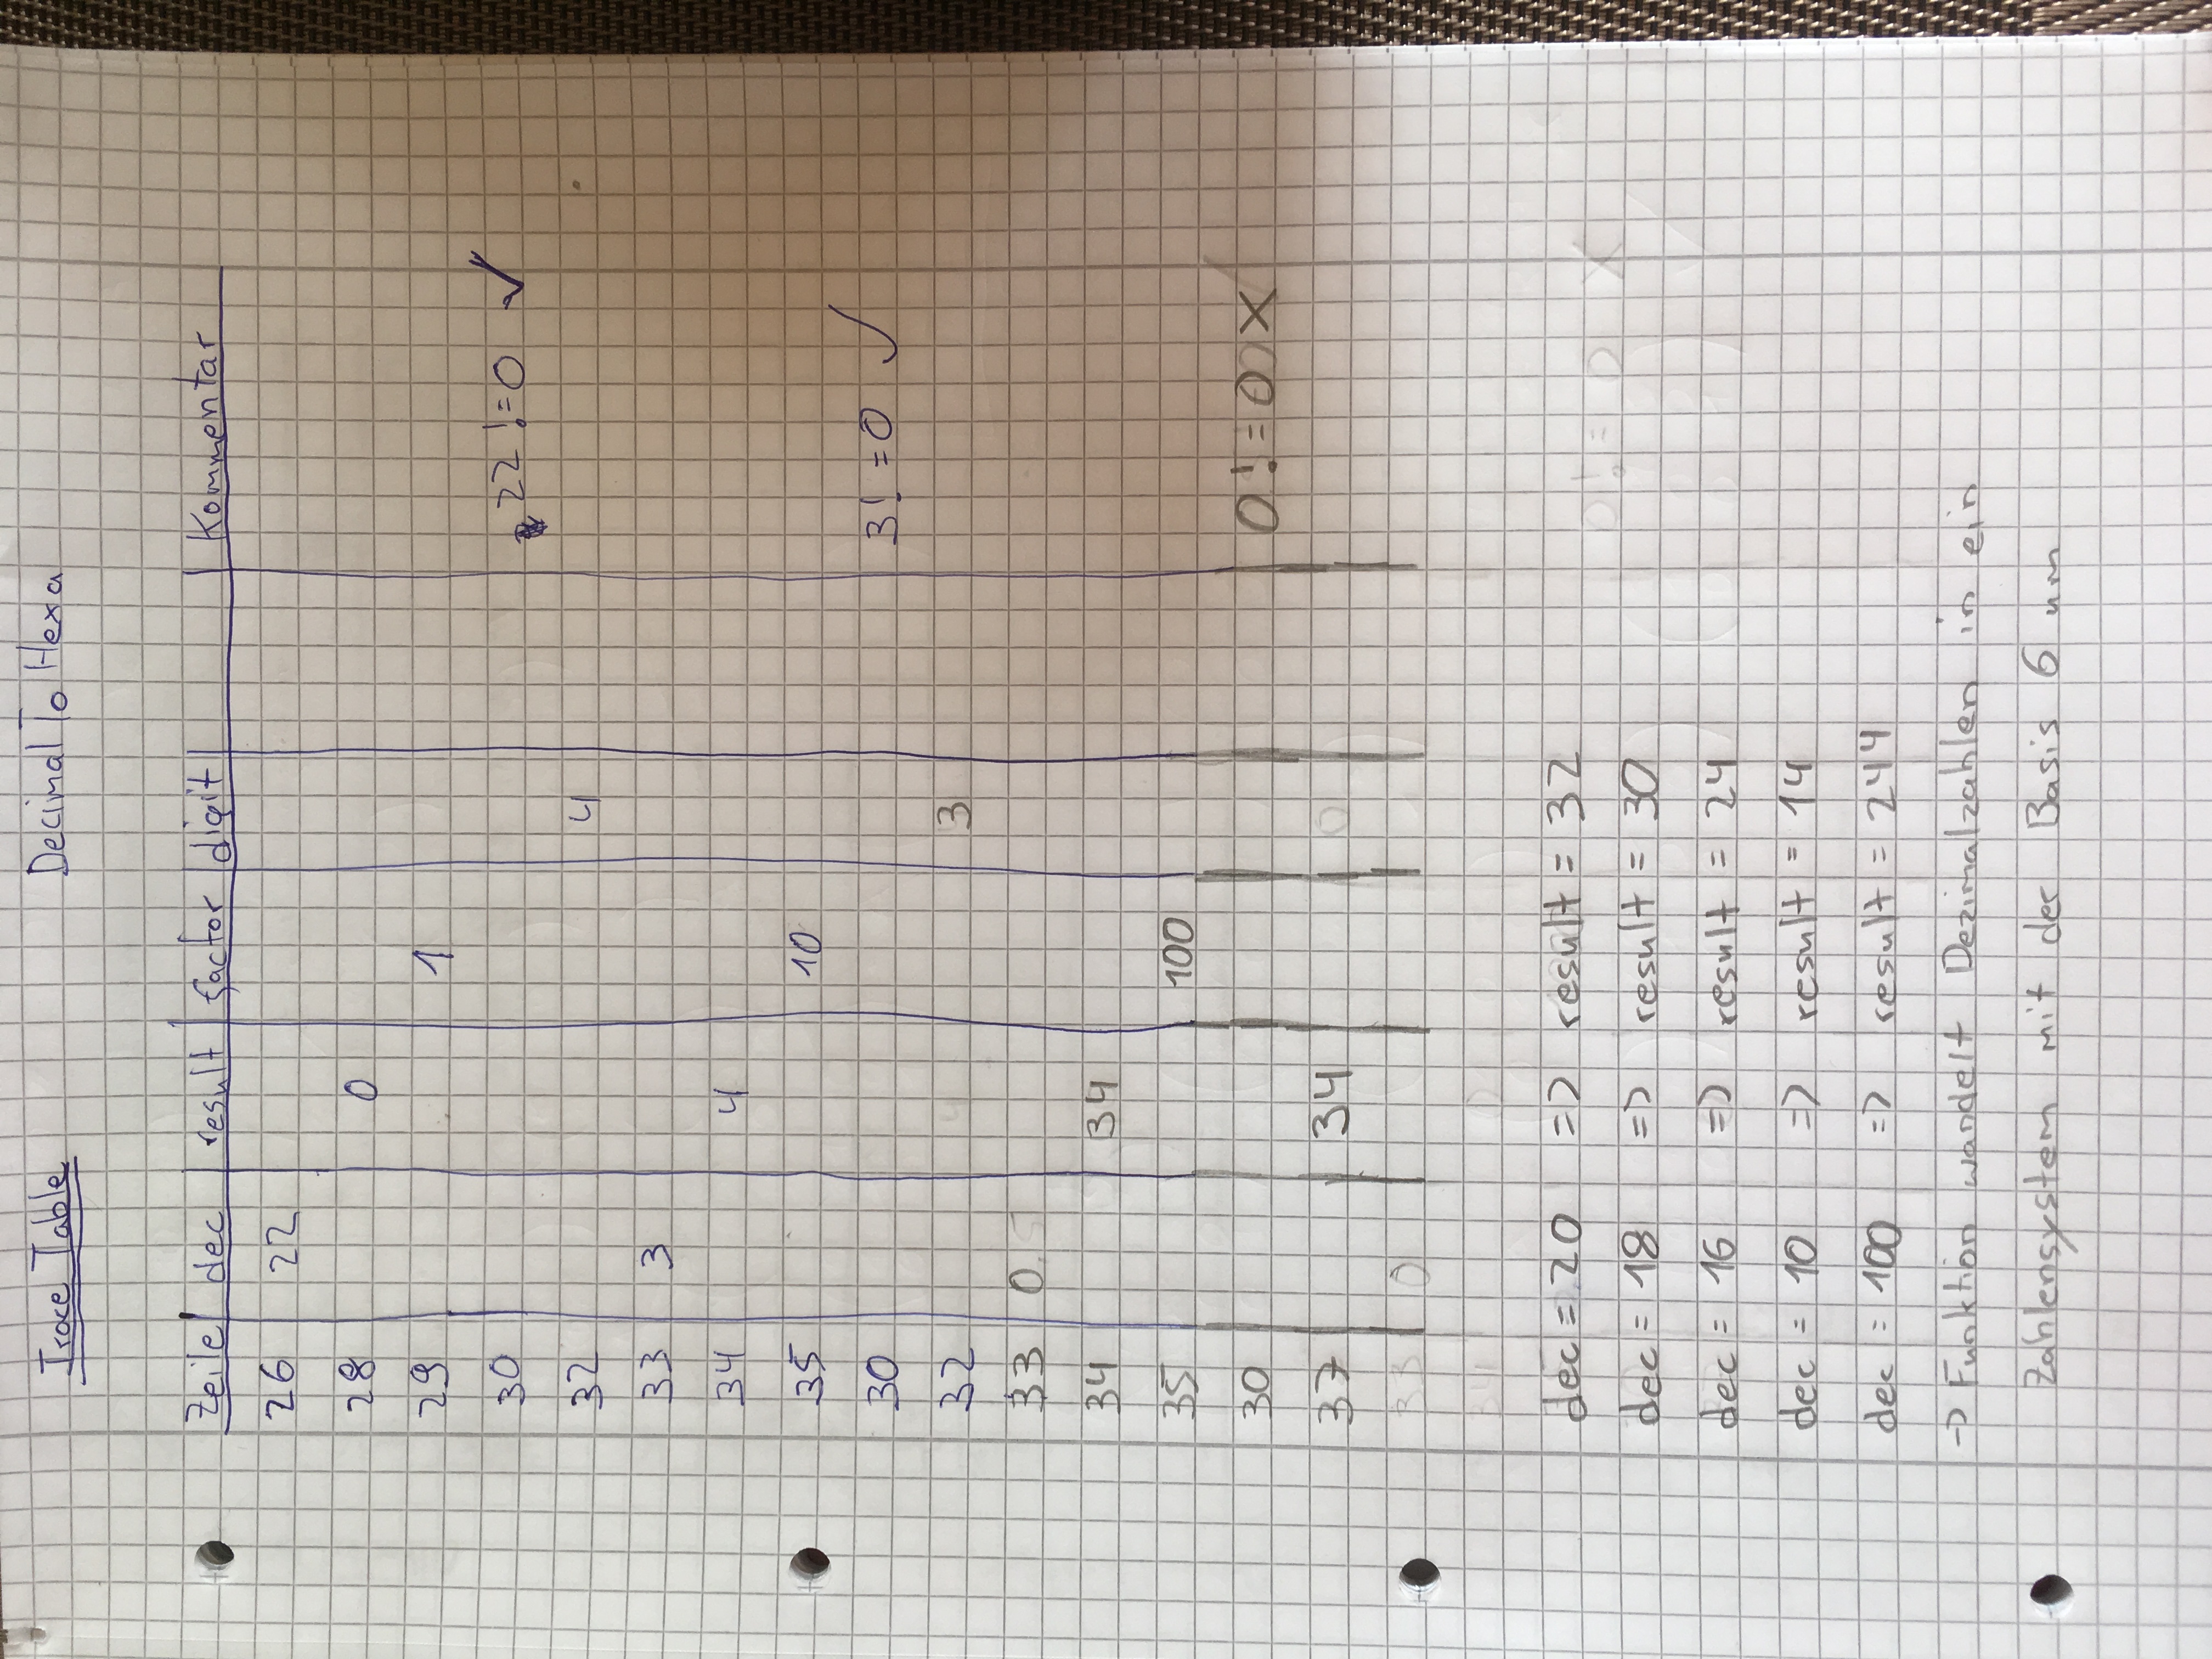 Trace Table Decimal To Hexa
Zeile dec result factor digit Kommentar
26 22
28 0
29 1
30 22 != 0 ✓
32 4
33 3
34 4
35 10
30 3! = 0 ✓
32 3
33 0
34 34
35 100
30 0! = 0 X
37 34
dec = 20 => result = 32
dec = 18 => result = 30
dec = 16 => result = 24
dec = 10 => result = 14
dec = 100 => result = 244
-> Funktion wandelt Dezimalzahlen in ein
Zahlensystem mit der Basis 6 um